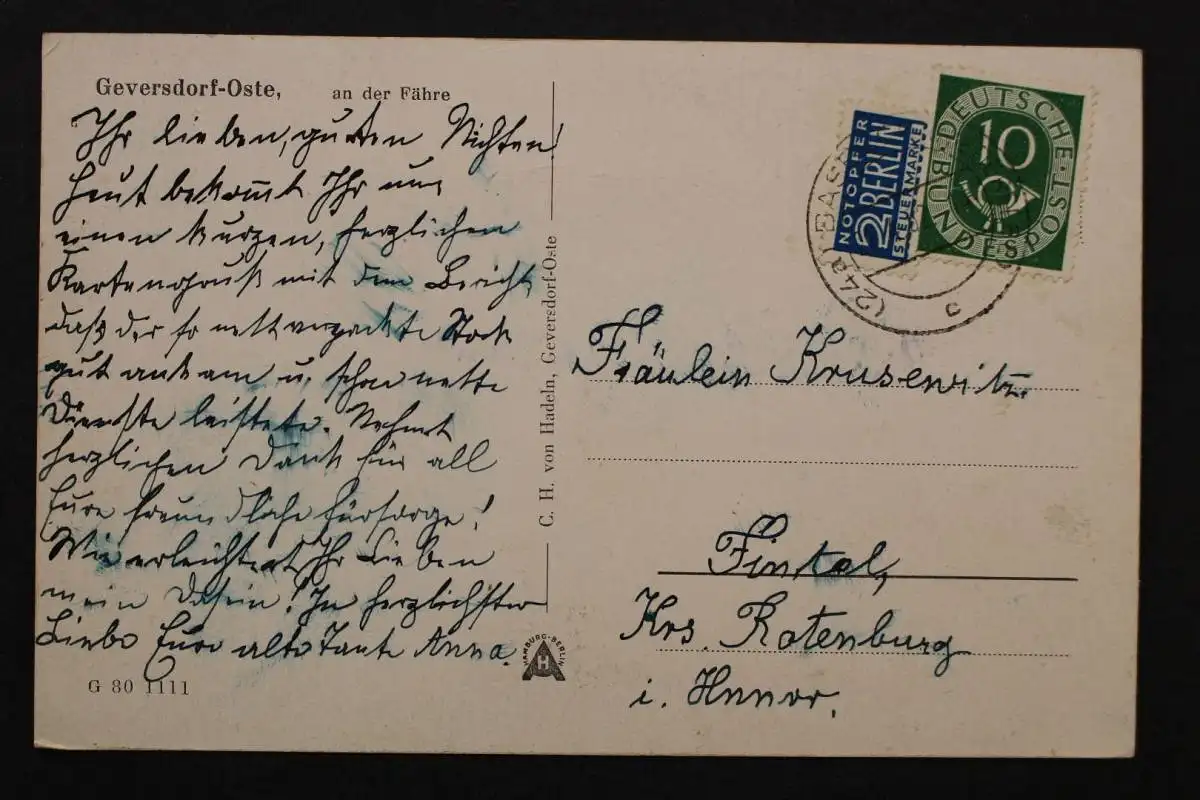 Geversdorf-Oste, an der Fähre
Ihr lieben, guten Nichten!
Heut bekommt Ihr nur
einen kurzen, herzlichen
Kartengruß mit dem Bericht,
daß der so nett verpackte Stock
gut ankam u. schon nette
Dienste leistete. Nehmt
herzlichen Dank für all
Eure freundliche Fürsorge!
Wie erleichtert Ihr Lieben
mein Dasein! In herzlichster
Liebe Eure alte Tante Anna.
G 80 1111
C. H. von Hadeln, Geversdorf-Oste
HAMBURG-BERLIN
H
NOTOPFER
2 BERLIN
STEUERMARKE
DEUTSCHE BUNDESPOST
10
(24a) BAS
c
Fräulein Krusewitz.
Fintel,
Krs. Rotenburg
i. Hannov.